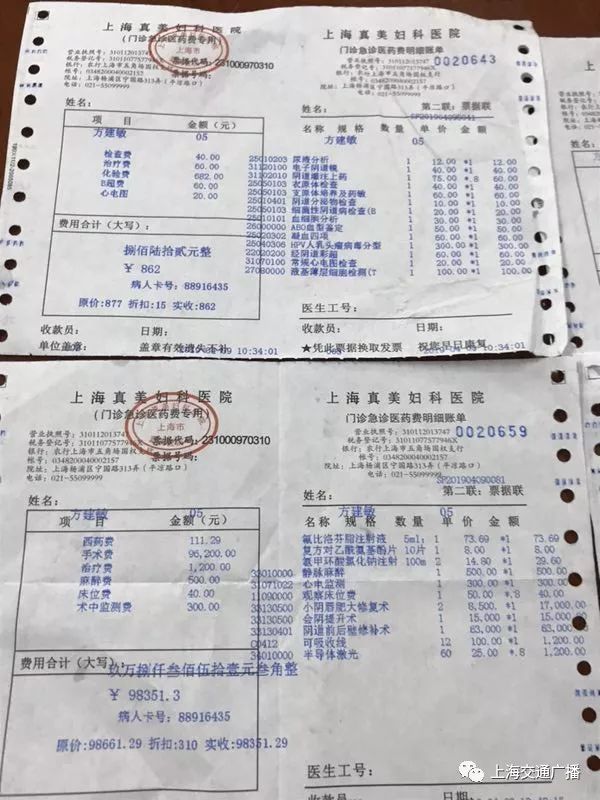 上海真美妇科医院
(门诊急诊医药费专用)
上海市
营业执照号: 310112013747
税务登记号: 31011077577946X
银行: 农行上海市五角场国权支行
帐号: 03482000040002157
院址: 上海杨浦区宁国路313弄(平凉路口)
电话: 021-55099999
票据号码: 231000970310
姓名:
方建敏 05
项 目 金额(元)
检查费 40.00
治疗费 60.00
化验费 682.00
B超费 60.00
心电图 20.00
费用合计(大写):
捌佰陆拾贰元整
¥ 862
病人卡号: 88916435
原价:877 折扣:15 实收:862
收款员: 日期:
单位盖章: 盖章有效遗失不补
10:34:01
上海真美妇科医院
门诊急诊医药费明细账单
营业执照号: 310112013747
税务登记号: 31011077577946X
银行: 农行上海市五角场国权支行
帐号: 03482000040002157
院址: 上海杨浦区宁国路313弄(平凉路口)
电话: 021-55099999
0020643
姓名: 第二联: 票据联
SP201904090041
方建敏 05
名称 规格 数量 单价 金额
25010203 尿液分析 1 12.00 *1 12.00
31120100 电子阴道镜 1 40.00 *1 40.00
阴道灌注上药 1 75.00 *.8 60.00
支原体检查 1 60.00 *1 60.00
支原体培养及药敏
25010401 阴道分泌物检查 1 10.00 *1 10.00
细菌性阴道病检查(B
25010101 血细胞分析 1 20.00 *1 20.00
26000000 ABO血型鉴定
25020302 凝血四项
25040306 HPV人乳头瘤病毒分型 1 300.00 *1 300.00
22020200 经阴道彩超 1 60.00 *1 60.00
31070100 常规心电图检查 1 20.00 *1 20.00
27080000 液基薄层细胞检测(T 1 100.00 *1 100.00
医生工号:
收款员: 日期:
★凭此票据换取发票 祝您早日康复
10:34:01
上海真美妇科医院
(门诊急诊医药费专用)
上海市
营业执照号: 310112013747
税务登记号: 31011077577946X
银行: 农行上海市五角场国权支行
帐号: 0348200040002157
院址: 上海杨浦区宁国路313弄(平凉路口)
电话: 021-55099999
票据代码: 231000970310
姓名:
方建敏 05
项 目 金额(元)
西药费 111.29
手术费 96,200.00
治疗费 1,200.00
麻醉费 500.00
床位费 40.00
术中监测费 300.00
费用合计(大写):
玖万捌仟叁佰伍拾壹元叁角整
¥ 98351.3
病人卡号: 88916435
原价:98661.29 折扣:310 实收:98351.29
上海真美妇科医院
门诊急诊医药费明细账单
营业执照号: 310112013747
税务登记号: 31011077577946X
银行: 农行上海市五角场国权支行
帐号: 0348200040002157
院址: 上海杨浦区宁国路313弄(平凉路口)
电话: 021-55099999
0020659
姓名: 第二联: 票据联
SP201904090081
方建敏 05
名称 规格 数量 单价 金额
氟比洛芬脂注射液 5ml: 1 73.69 *1 73.69
复方对乙酰氨基酚片 10片 1 8.00 *1 8.00
氨甲环酸氯化钠注射 100m 2 14.80 *1 29.60
33010000 静脉麻醉
31071022 心电监测 1 300.00 *1 300.00
11090000 观察床位费 1 50.00 *.8 40.00
33130500 小阴唇肥大修复术 2 8,500. *1 17,000.00
会阴提升术 1 15,000. *1
33130401 阴道前后壁修补术 1 63,000. *1 63,000.00
C0412 可吸收线 12 100.00 *1 1,200.00
34010000 半导体激光 60 25.00 *.8 1,200.00
医生工号:
上海交通广播